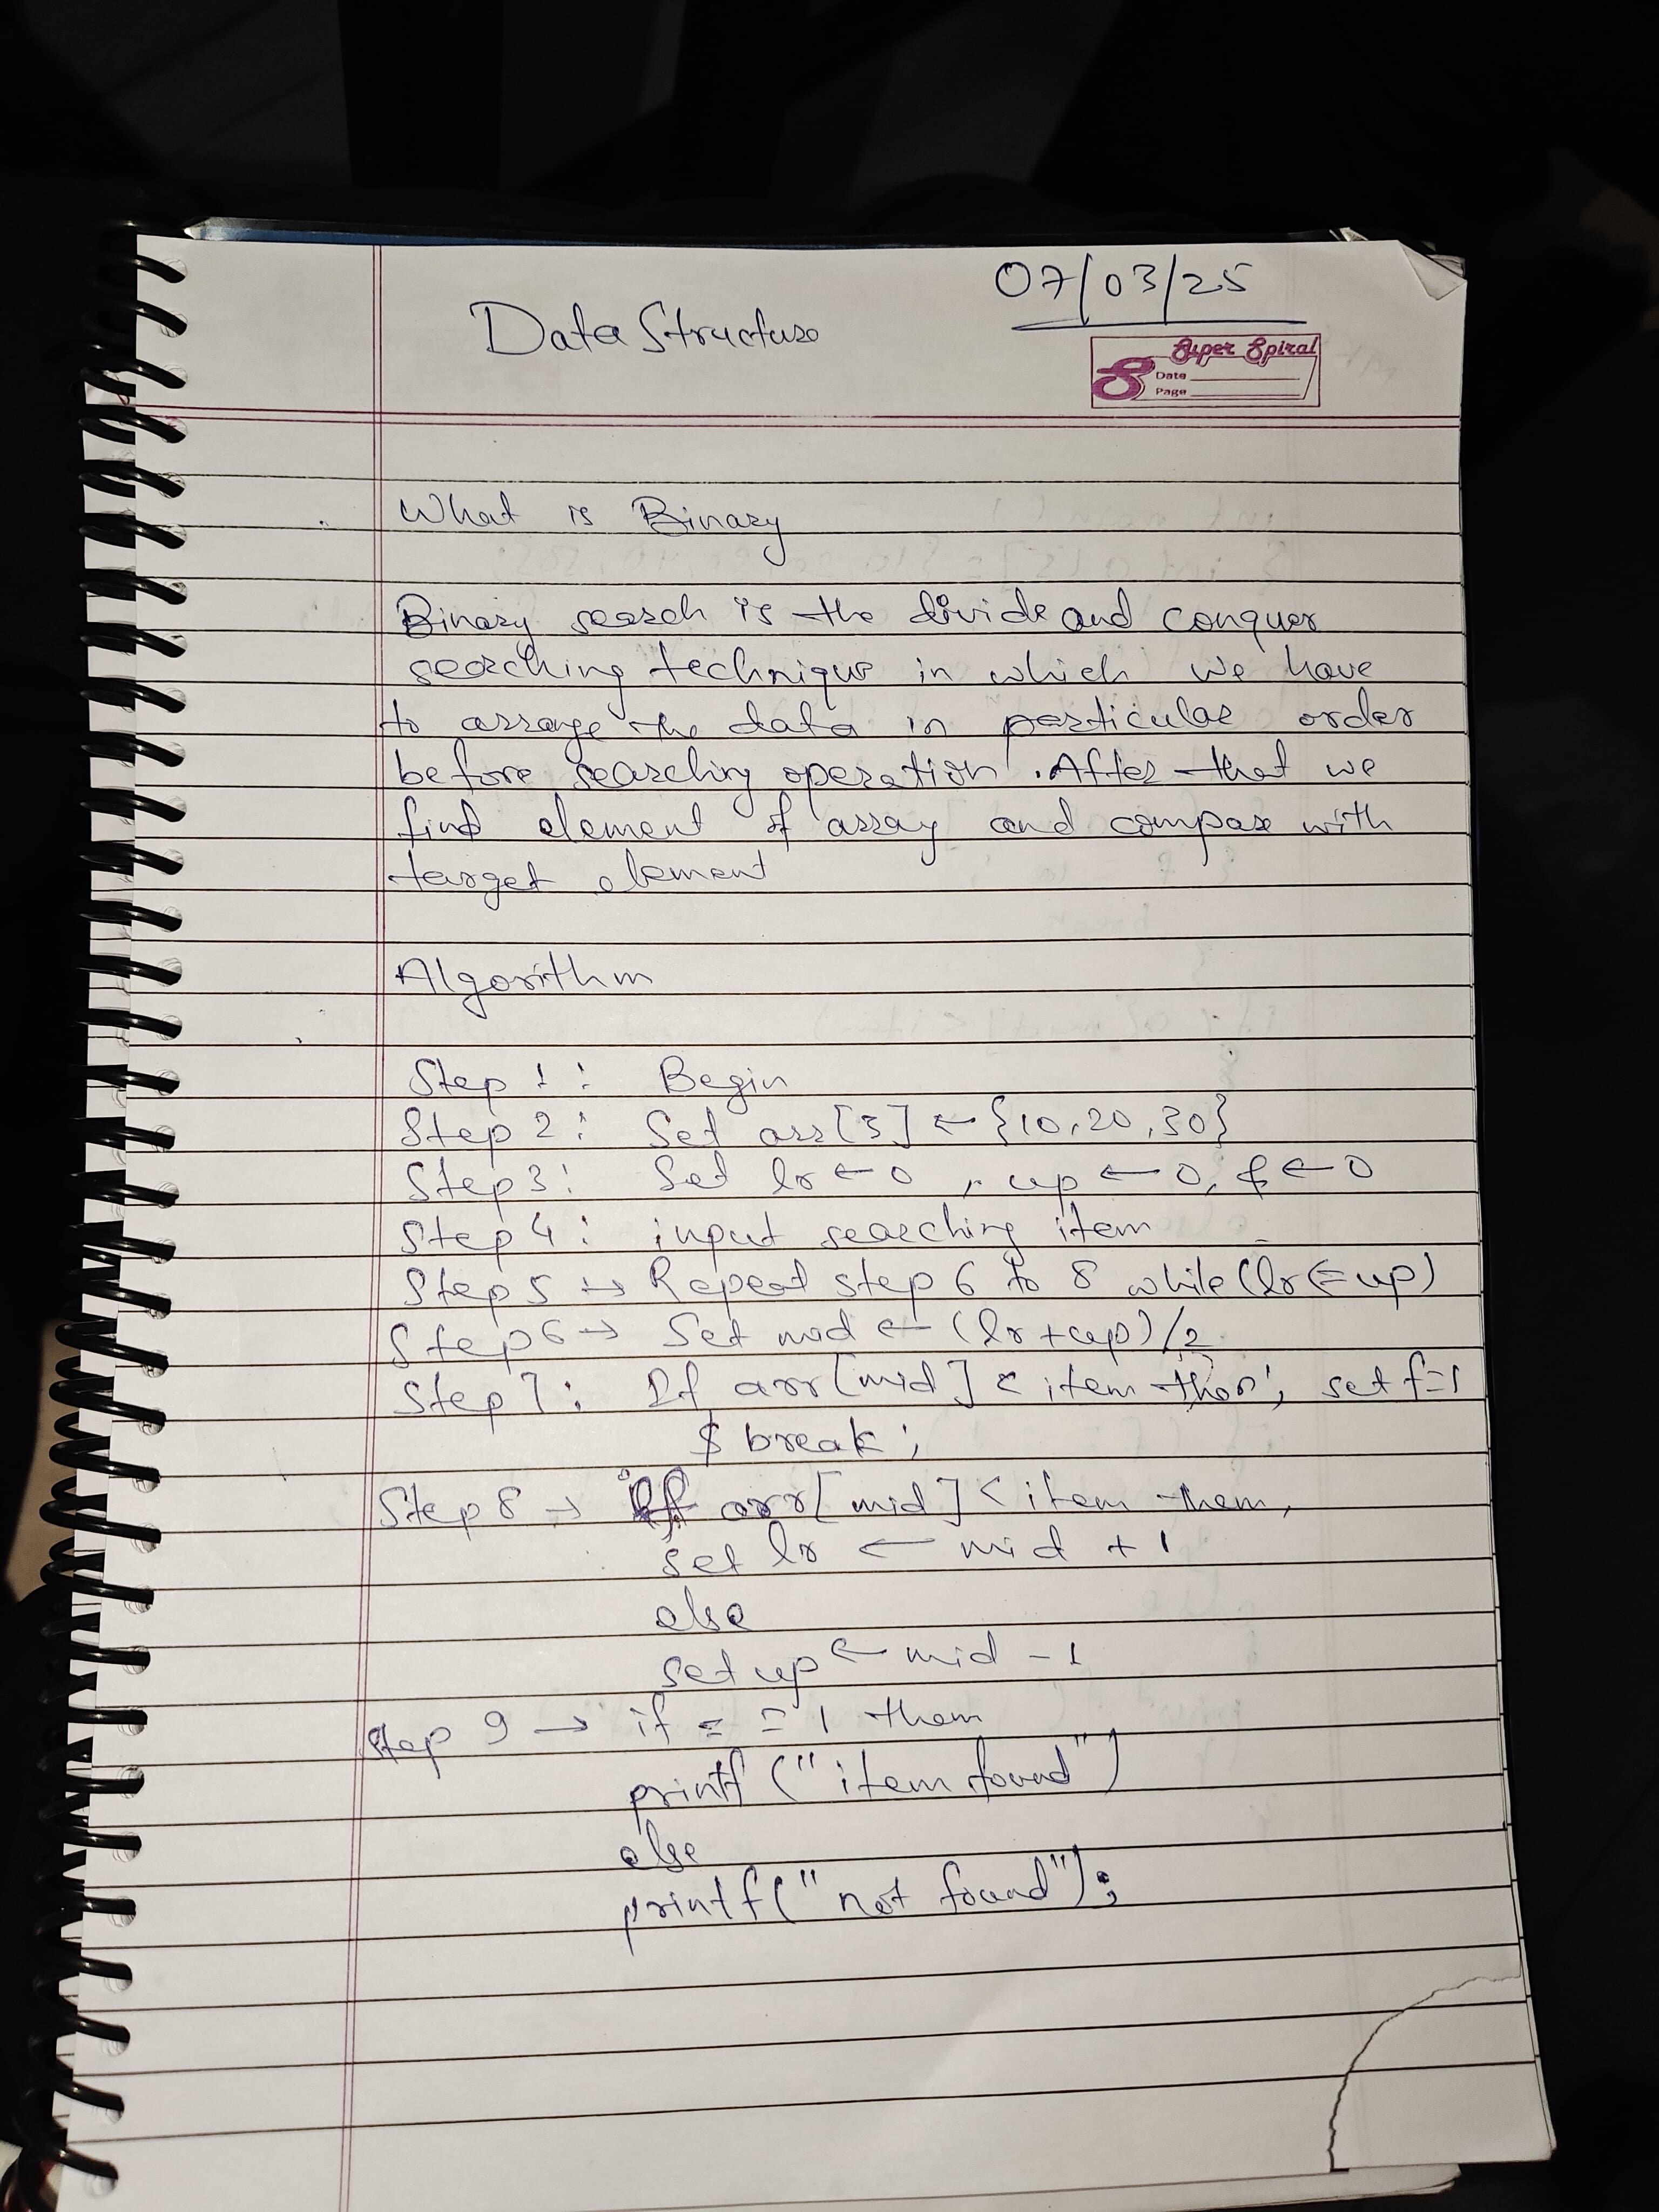 07/03/25
Data Structure
Super Spiral
Date
Page
What is Binary
Binary search is the divide and conquer
searching technique in which we have
to arrange the data in particular order
before searching operation. After that we
find element of array and compare with
target element
Algorithm
Step 1: Begin
Step 2: Set arr[3] ← {10,20,30}
Step 3: Set lr ← 0, up ← 0, f ← 0
Step 4: input searching item
Step 5 → Repeat step 6 to 8 while (lr <= up)
Step 6 → Set mid ← (lr + up)/2
Step 7: If arr[mid] < item then; set f=1
$ break;
Step 8 → if arr[mid] < item them,
set lr ← mid + 1
else
set up ← mid - 1
Step 9 → if = = 1 them
printf ("item found")
else
printf("not found");